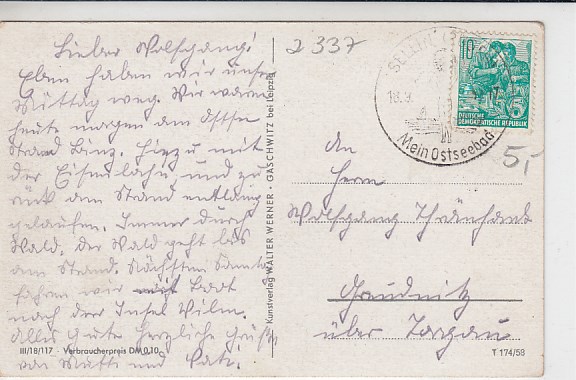 Lieber Wolfgang!
Eben haben wir unser
Mittag weg. Wir waren
heute morgen am Ostsee
Strand Binz. Hinzu mit
der Eisenbahn und zu
rück am Strand entlang
gelaufen. Immer durch
Wald, der Wald geht bis
am Strand. Nächsten Samstag
fahren wir mit Boot
nach der Insel Vilm.
Alles gute herzliche Grüße
von Mutti und Vati.
III/18/117 · Verbraucherpreis DM 0,10
Kunstverlag WALTER WERNER · GASCHWITZ bei Leipzig
2337
SELLIN
18.9.
Mein Ostseebad
10
5
DEUTSCHE
DEMOKRATISCHE REPUBLIK
5,-
An
Herrn
Wolfgang
über Torgau
T 174/58